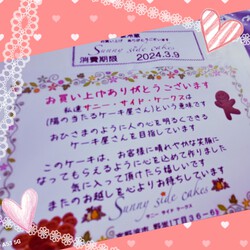 Sunny side cakes
消費期限 2024.3.9
お買い上げありがとうございます
私達サニー・サイド・ケークスは
(陽の当たるケーキ屋さん)という意味です
おひさまのように人の心を明るくできる
ケーキ屋さんを目指しています
このケーキは、お客様に晴れやかな笑顔に
なってもらえるように心を込めて作りました
気に入って頂けたら嬉しいです
またのお越しを心よりお待ちしています
Sunny side cakes
サニー サイド ケークス
1丁目36-6